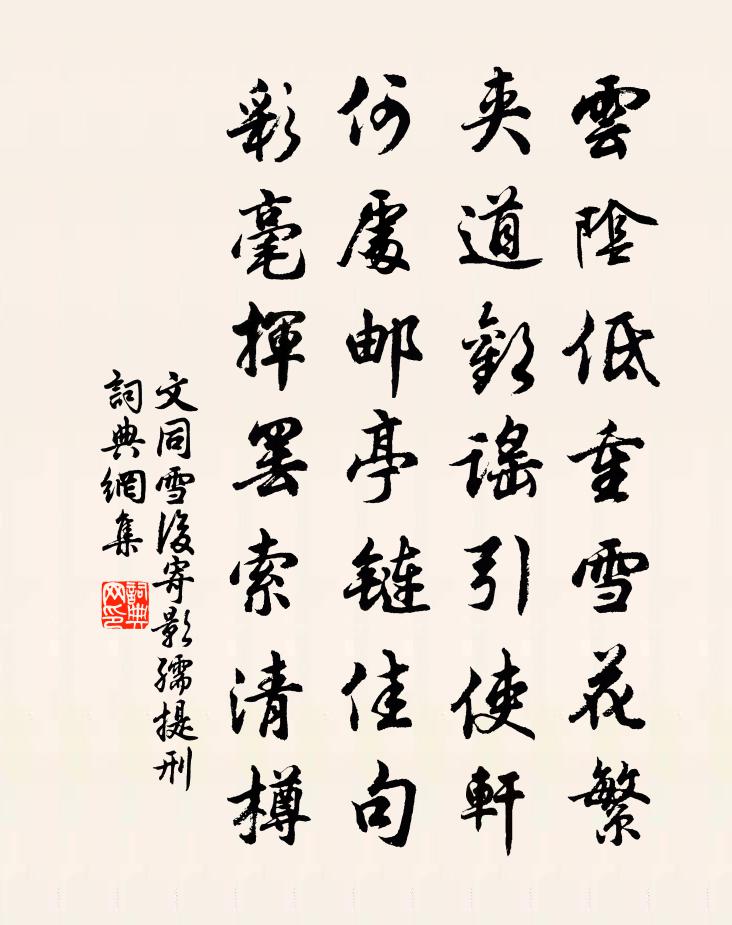 雲陰低重雪花繁
夾道歡謠引使軒
何處邮亭鏈佳句
彩毫揮罢索清樽
文同雪後寄影孺提刑
詞典網集
詞典网印